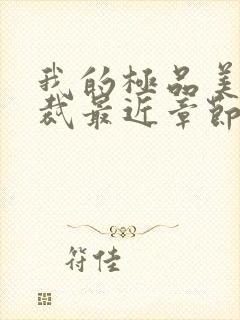 我的極品美
裁最近章節
符佳